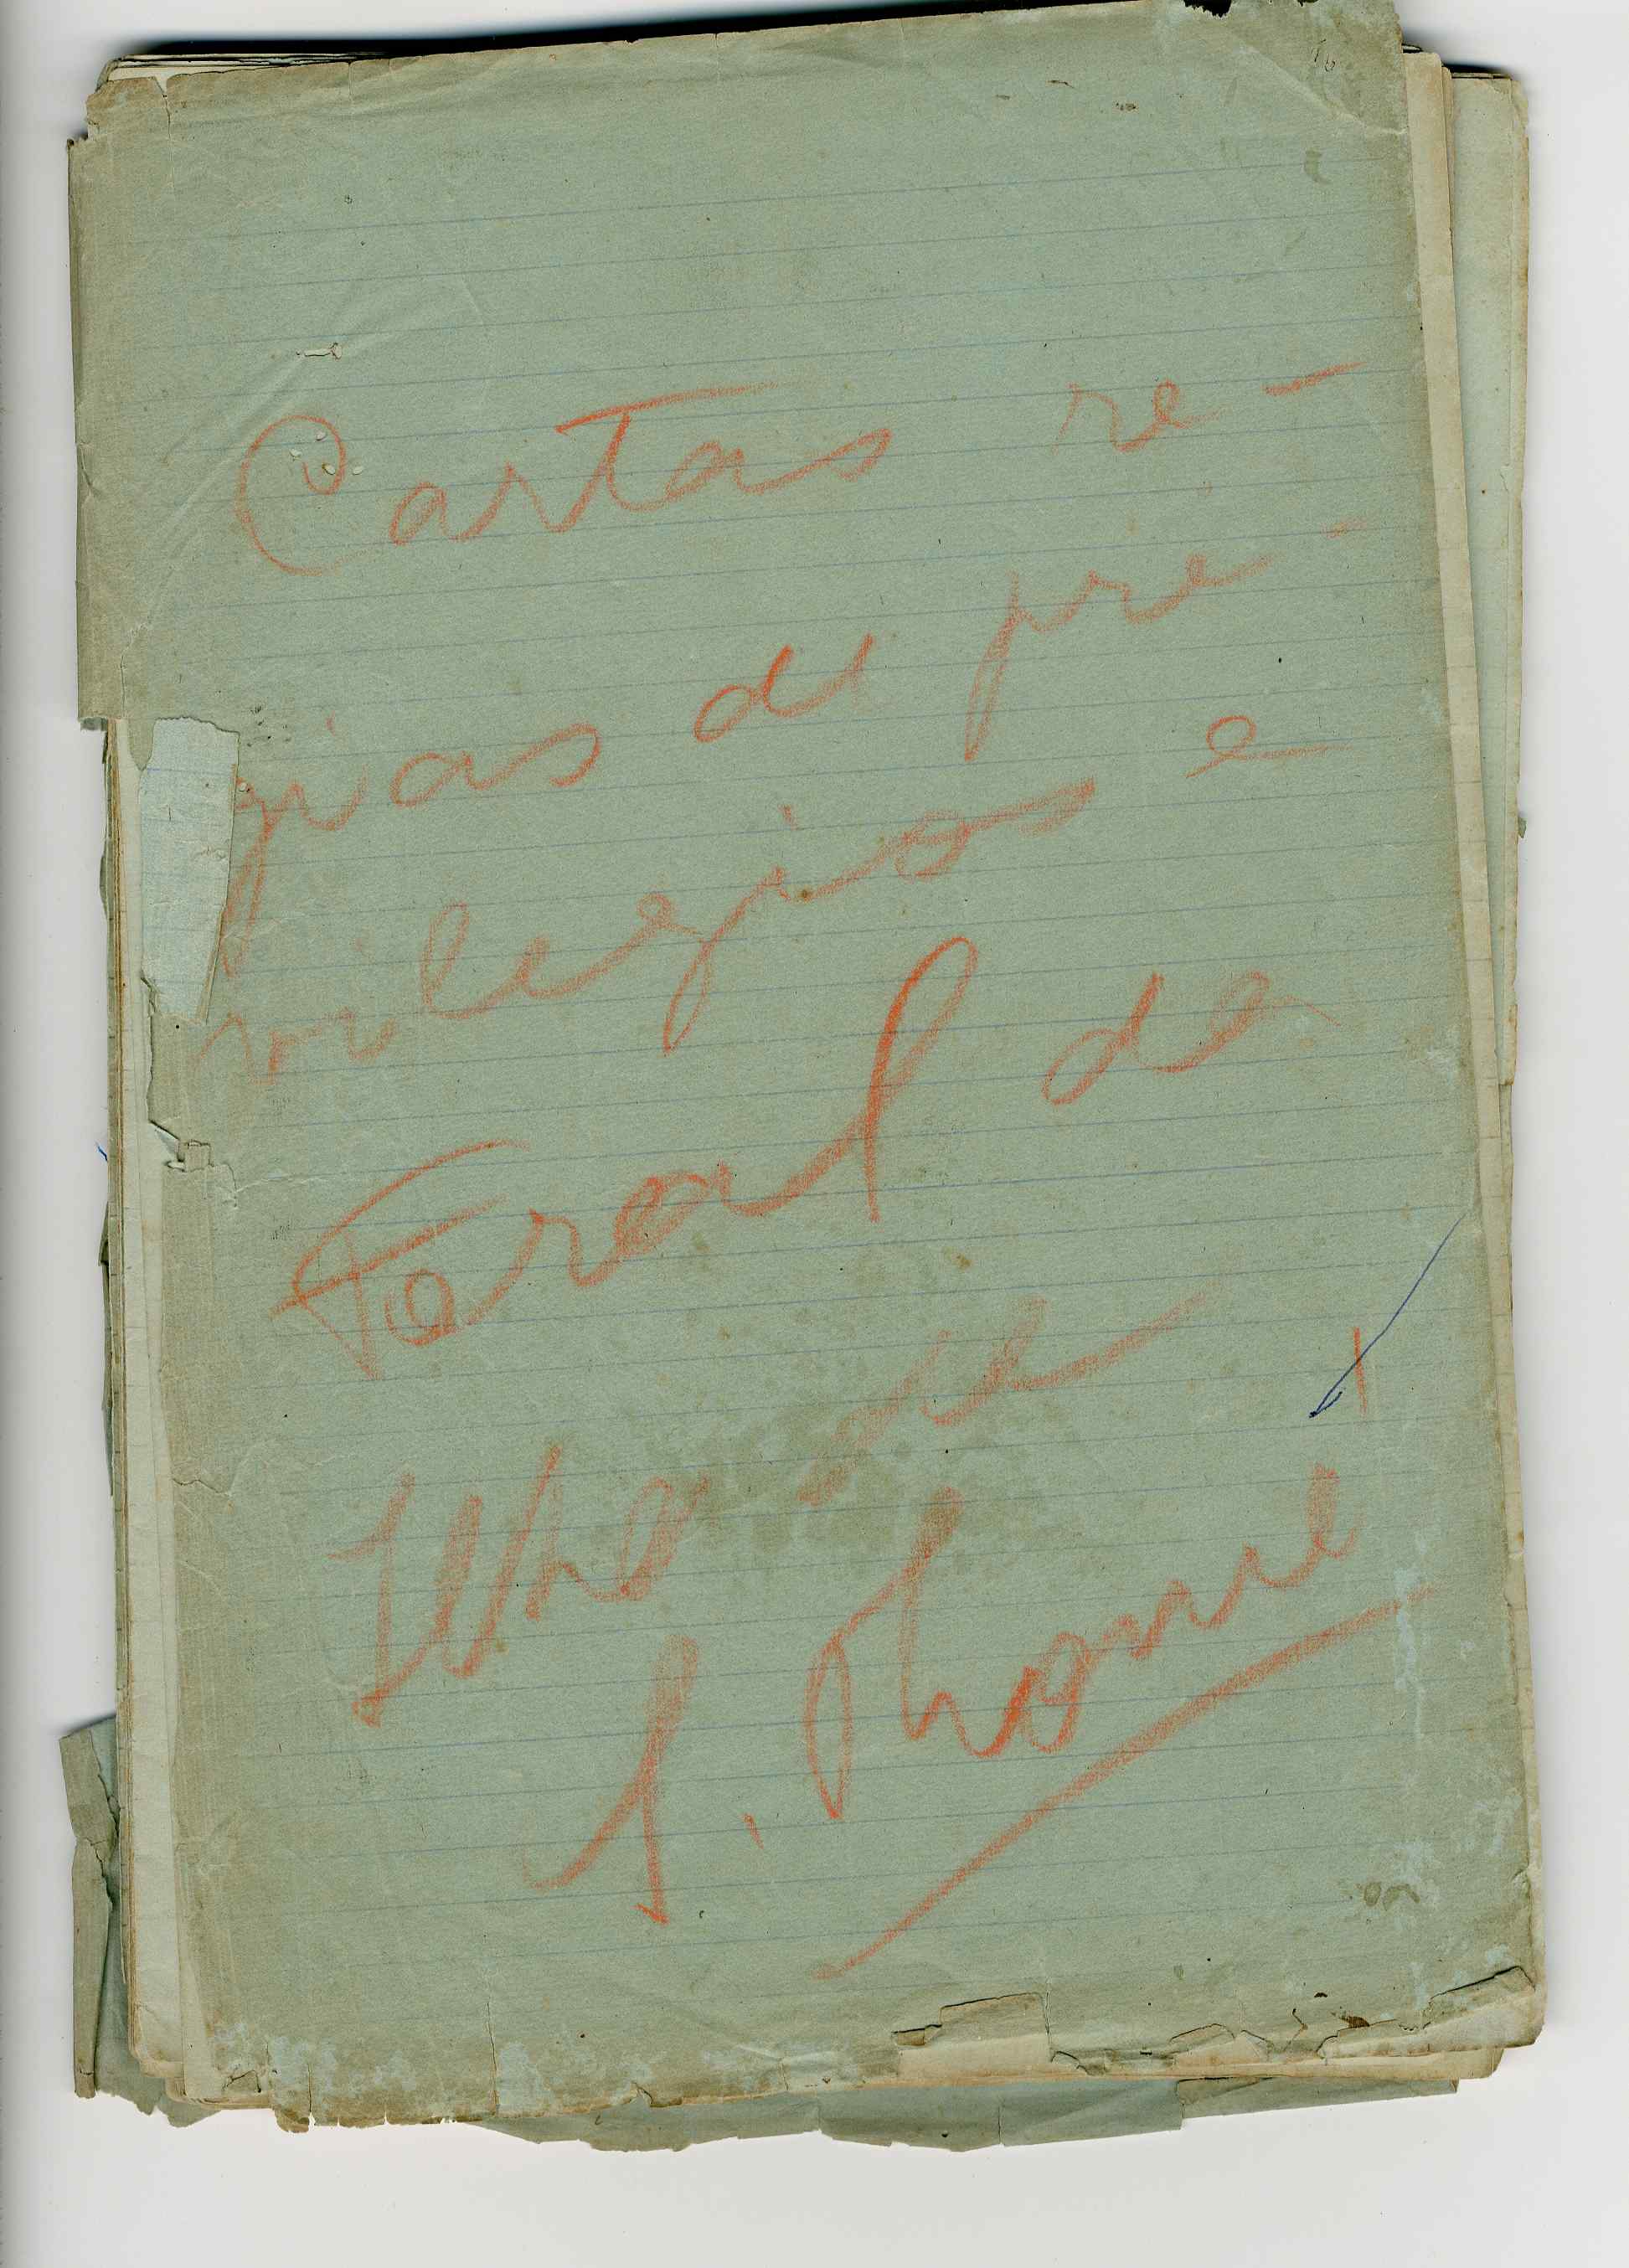 Cartas re-
gias de pri-
vilegios e
Foral de
Ilha de
S. Thomé